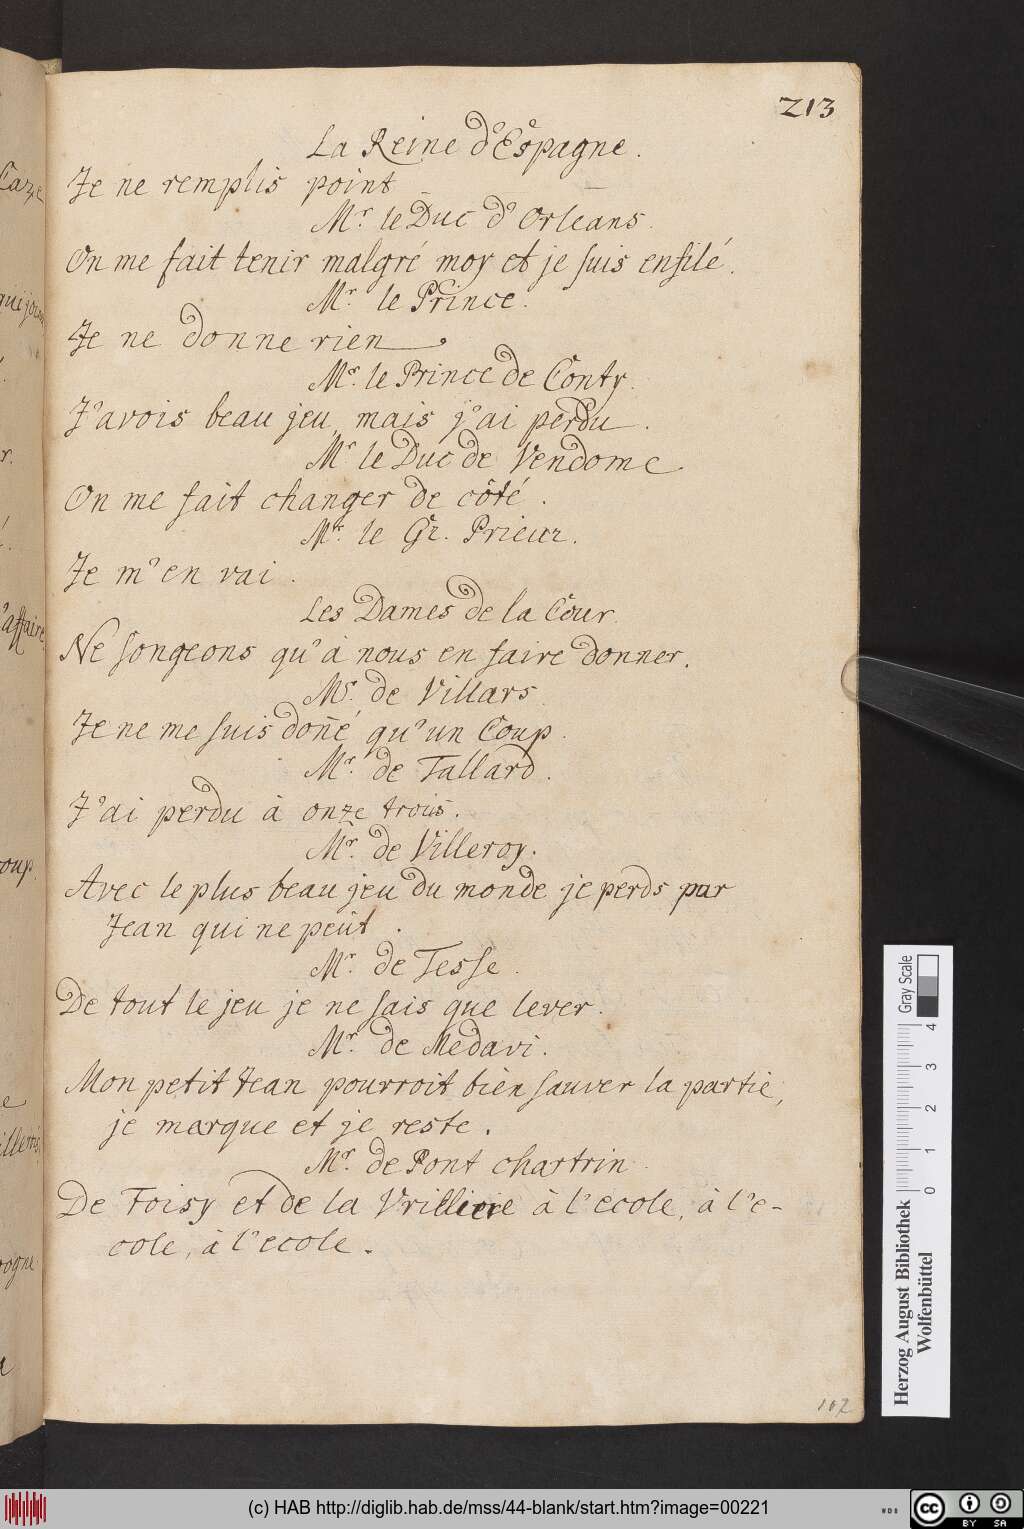 213
La Reine d'Espagne.
Je ne remplis point
Mr. le Duc d'Orleans.
On me fait tenir malgré moy et je suis enfilé.
Mr. le Prince.
Je ne donne rien
Mr. le Prince de Conty.
J'avois beau jeu mais j'ai perdu.
Mr le Duc de Vendome
On me fait changer de côté.
Mr. le Gr. Prieur.
Je m'en vai.
Les Dames de la Cour.
Ne songeons qu'à nous en faire donner.
Mr. de Villars
Je ne me suis doñé qu'un Coup.
Mr. de Tallard.
J'ai perdu à onze trois.
Mr. de Villeroy.
Avec le plus beau jeu du monde je perds par
Jean qui ne peut.
Mr. de Tesse.
De tout le jeu je ne sais que lever.
Mr. de Medavi.
Mon petit Jean pourroit bien sauver la partie,
je marque et je reste.
Mr. de Pont chartrin
De Foisy et de la Vrilliere à l'ecole, à l'e-
cole, à l'ecole.
107
Caze
qui joue
r.
l'affaire
coup.
e
rogne
Gray Scale
0 1 2 3 4
Herzog August Bibliothek
Wolfenbüttel
(c) HAB http://diglib.hab.de/mss/44-blank/start.htm?image=00221
WDB
cc BY SA